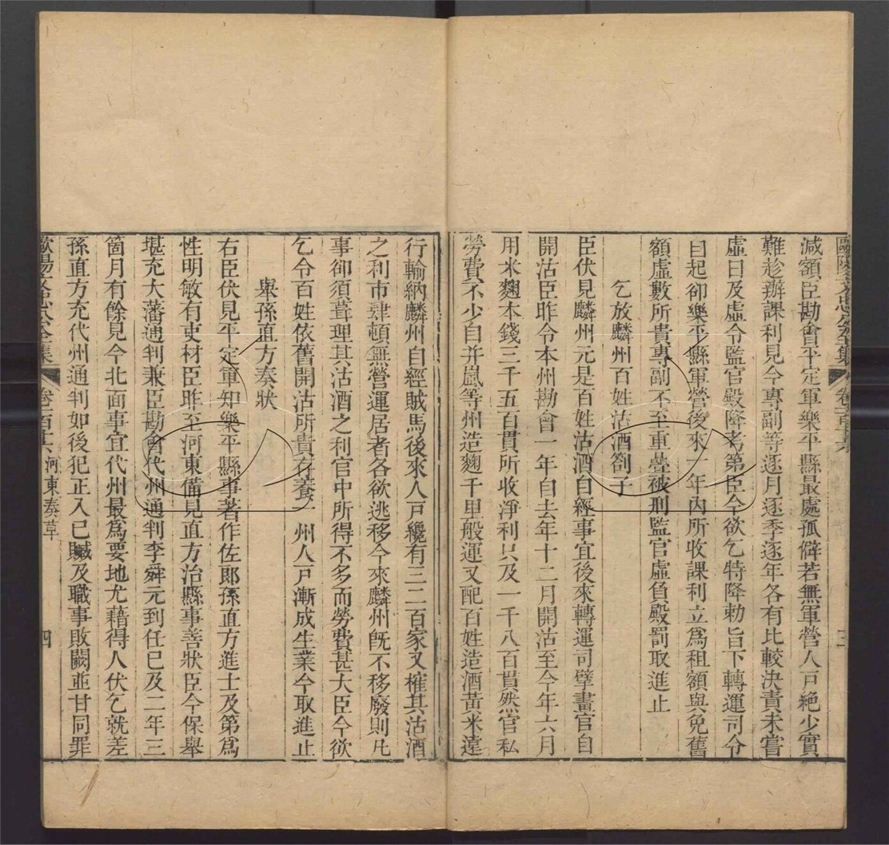 歐陽文忠公全集 卷一百十六 三
減額臣勘會平定軍樂平縣最處孤僻若無軍營人戶絕少實
難趁辦課利見今專副等逐月逐季逐年各有比較決責未嘗
虛日及虛令監官殿降考第臣今欲乞特降勑旨下轉運司令
自起卻樂平縣軍營後來一年內所收課利立爲租額與免舊
額虛數所貴專副不至重疊被刑監官虛負殿罰取進止
乞放麟州百姓沽酒劄子
臣伏見麟州元是百姓沽酒自經事宜後來轉運司擘畫官自
開沽臣昨令本州勘會一年自去年十二月開沽至今年六月
用米麴本錢三千五百貫所收淨利只及一千八百貫然官私
勞費不少自幷嵐等州造麴千里般運又配百姓造酒黃米遠
行輸納麟州自經賊馬後來人戶纔有三二百家又榷其沽酒
之利市肆頓無營運居者各欲逃移今來麟州旣不移廢則凡
事卻須葺理其沽酒之利官中所得不多而勞費甚大臣今欲
乞令百姓依舊開沽所貴存養一州人戶漸成生業今取進止
舉孫直方奏狀
右臣伏見平定軍知樂平縣事著作佐郎孫直方進士及第爲
性明敏有吏材臣昨至河東備見直方治縣事善狀臣今保舉
堪充大藩通判兼臣勘會代州通判李舜元到任已及二年三
箇月有餘見今北面事宜代州最爲要地尤藉得人伏乞就差
孫直方充代州通判如後犯正入已贓及職事敗闕並甘同罪
歐陽文忠公全集 卷一百十六 河東奏草 四